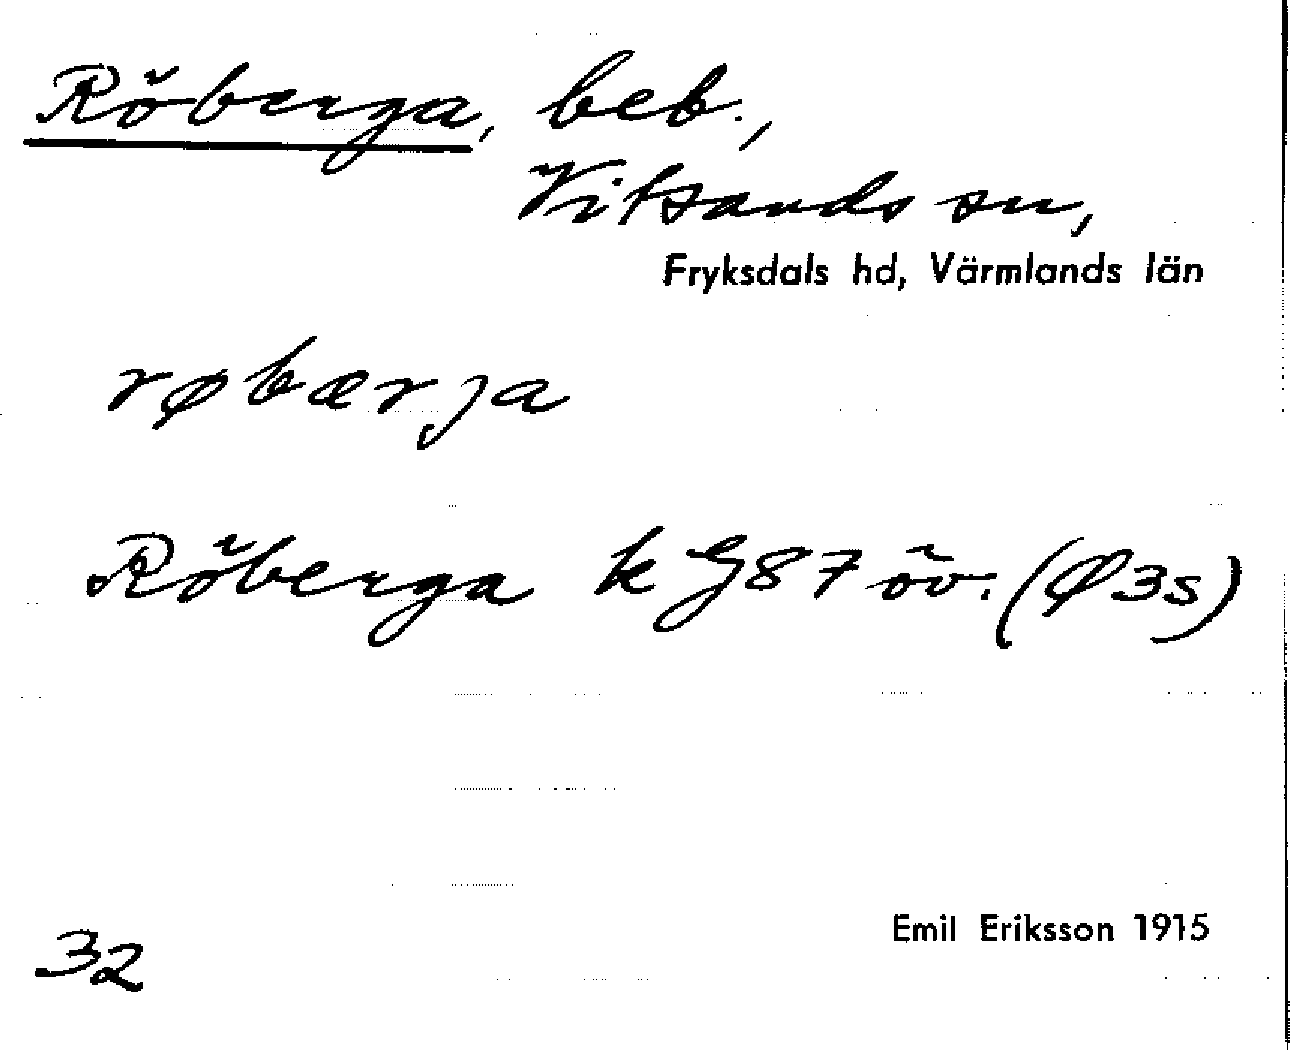 Röberga, beb.,
Vitsands sn,
Fryksdals hd, Värmlands län
røbærja
Röberga k G87 öv. (Ø3s)
Emil Eriksson 1915
32